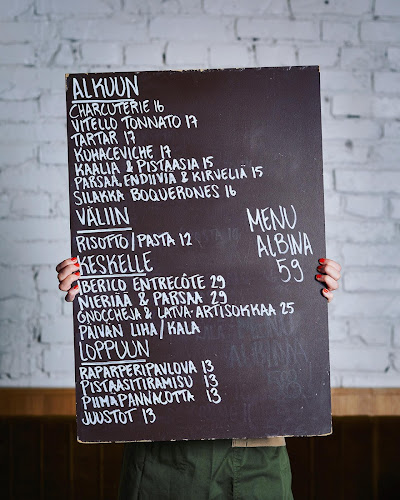 ALKUUN
CHARCUTERIE 16
VITELLO TONNATO 17
TARTAR 17
KUHACEVICHE 17
KAALIA & PISTAASIA 15
PARSAA, ENDIIVIA & KIRVELIÄ 15
SILAKKA BOQUERONES 16
VÄLIIN
RISOTTO/PASTA 12
KESKELLE
IBERICO ENTRECÔTE 29
NIERIÄÄ & PARSAA 29
GNOCCHEJA & LATVA-ARTISOKKAA 25
PÄIVÄN LIHA/KALA
LOPPUUN
RAPARPERIPAVLOVA 13
PISTAASITIRAMISU 13
PIIMÄPANNACOTTA 13
JUUSTOT 13
MENU
ALBINA
59